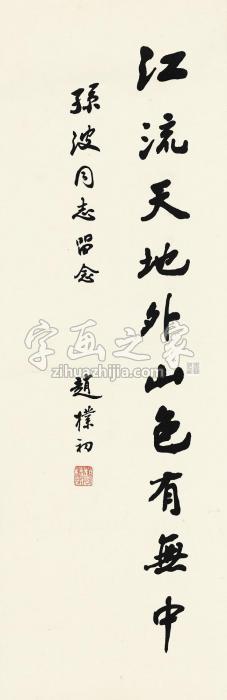 江流天地外山色有無中
孫波同志留念
趙樸初
字画之家
zihuazhijia.com